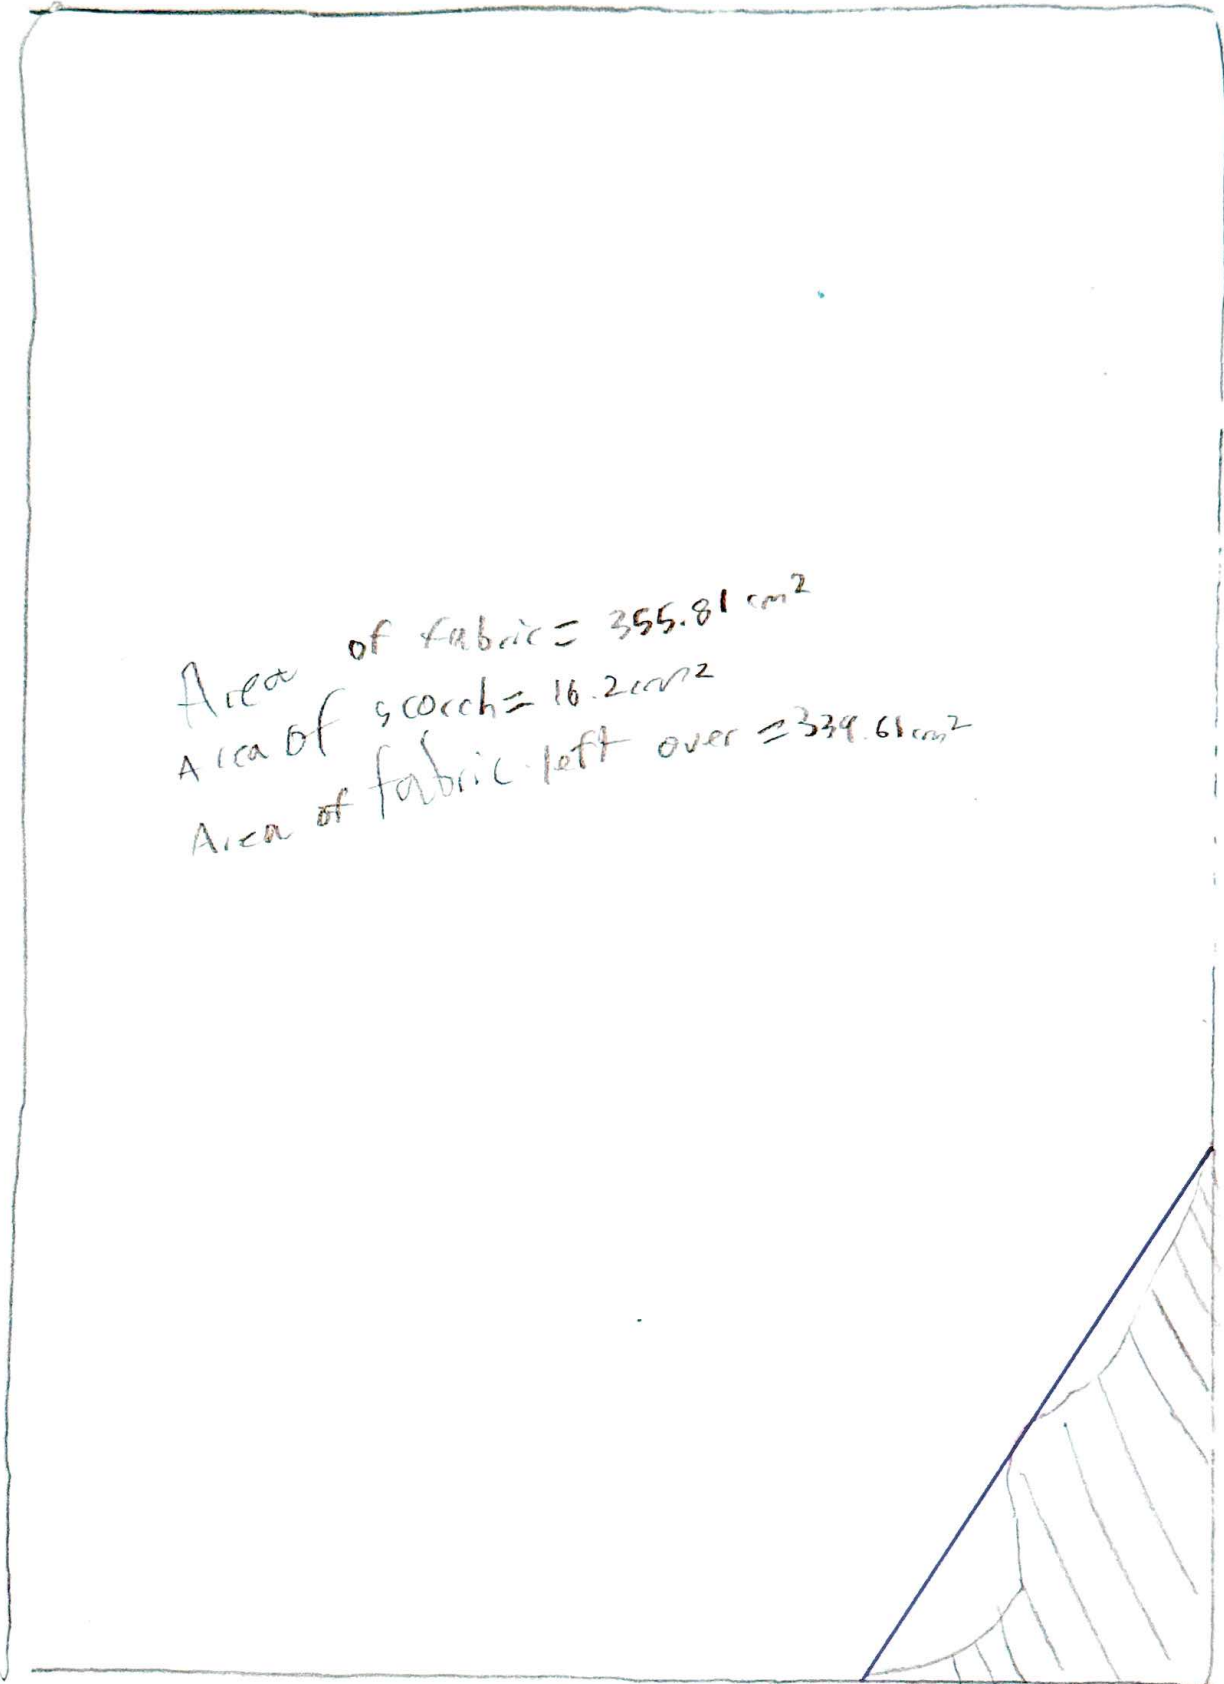 Area of fabric = 355.81 cm²
Area of scorch = 16.2 cm²
Area of fabric left over = 339.61 cm²